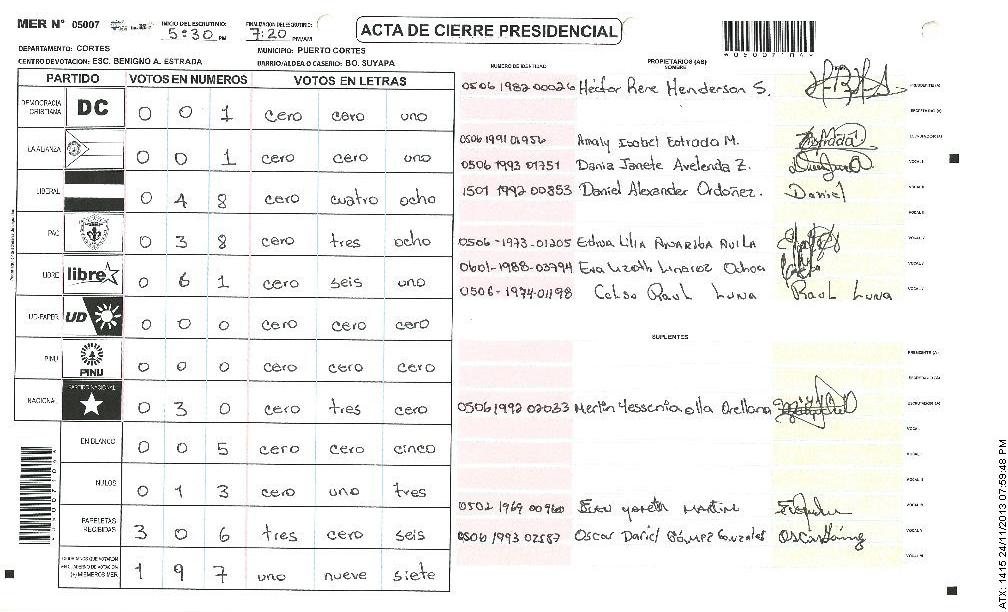 MER N° 05007 INICIO DEL ESCRUTINIO: 5:30 PM FINALIZACION ESCRUTINIO: 7:20 PM/AM ACTA DE CIERRE PRESIDENCIAL
DEPARTAMENTO: CORTES MUNICIPIO: PUERTO CORTES
CENTRO DE VOTACION: ESC. BENIGNO A. ESTRADA BARRIO/ALDEA O CASERIO: BO. SUYAPA
PARTIDO VOTOS EN NUMEROS VOTOS EN LETRAS
DEMOCRACIA CRISTIANA DC 0 0 1 cero cero uno
LA ALIANZA 0 0 1 cero cero uno
LIBERAL 0 4 8 cero cuatro ocho
PAC 0 3 8 cero tres ocho
LIBRE libre 0 6 1 cero seis uno
UD-FAPER UD 0 0 0 cero cero cero
PINU PINU 0 0 0 cero cero cero
NACIONAL PARTIDO NACIONAL 0 3 0 cero tres cero
EN BLANCO 0 0 5 cero cero cinco
NULOS 0 1 3 cero uno tres
PAPELETAS RECIBIDAS 3 0 6 tres cero seis
CIUDADANOS QUE VOTARON SEGUN CUADERNO DE VOTACION (+) MIEMBROS MER 1 9 7 uno nueve siete
NUMERO DE IDENTIDAD PROPIETARIOS (AS) NOMBRE
0506 1982 00026 Héctor Rene Henderson S. PRESIDENTE (A)
SECRETARIO (A)
0506 1991 01956 Analy Isobel Estrada M. ESCRUTADOR (A)
0506 1993 01751 Dania Janete Avelenda Z. VOCAL I
1501 1992 00853 Daniel Alexander Ordoñez. Daniel
0506-1973-01205 Edna Lilia
0601-1988-03794 Eva Lizeth Ochoa
0506-1974-01198 Celso Raul Luna Raul Luna
SUPLENTES
PRESIDENTE (A)
SECRETARIO (A)
0506 1992 02033 Merlin Yessenia Orellana ESCRUTADOR (A)
0502 1969 00960 Martin
0506 1993 02587 Oscar Dariel Gonzales
ATX: 1415 24/11/2013 07:59:48 PM